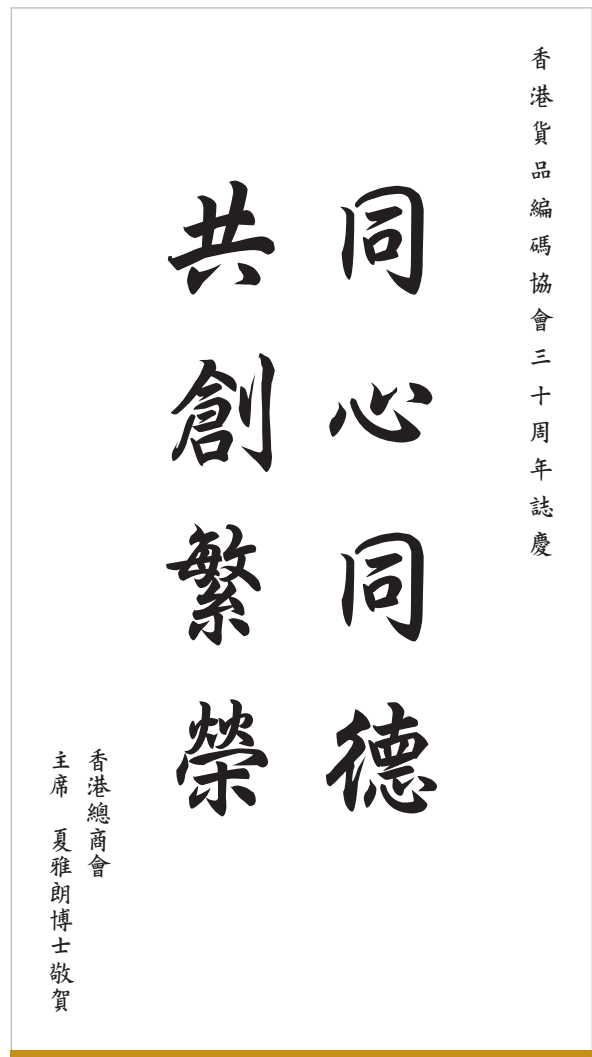 香港貨品編碼協會三十周年誌慶
同心同德
共創繁榮
香港總商會
主席 夏雅朗博士敬賀